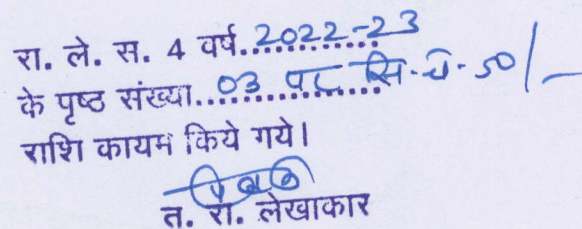 रा. ले. स. 4 वर्ष..2022-23
के पृष्ठ संख्या...03 पर सि-वे-50/-
राशि कायम किये गये।
त. रा. लेखाकार